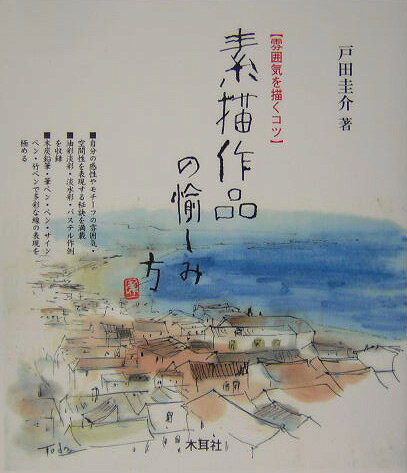 戸田圭介 著
【雰囲気を描くコツ】
素描作品
の愉しみ
方
■自分の感性やモチーフの雰囲気・
空間性を表現する秘訣を満載
■油彩淡彩・淡水彩・パステル作例
を収録
■木炭鉛筆・筆ペン・ペン・サイン
ペン・竹ペンで多彩な線の表現を
極める
Toda
木耳社